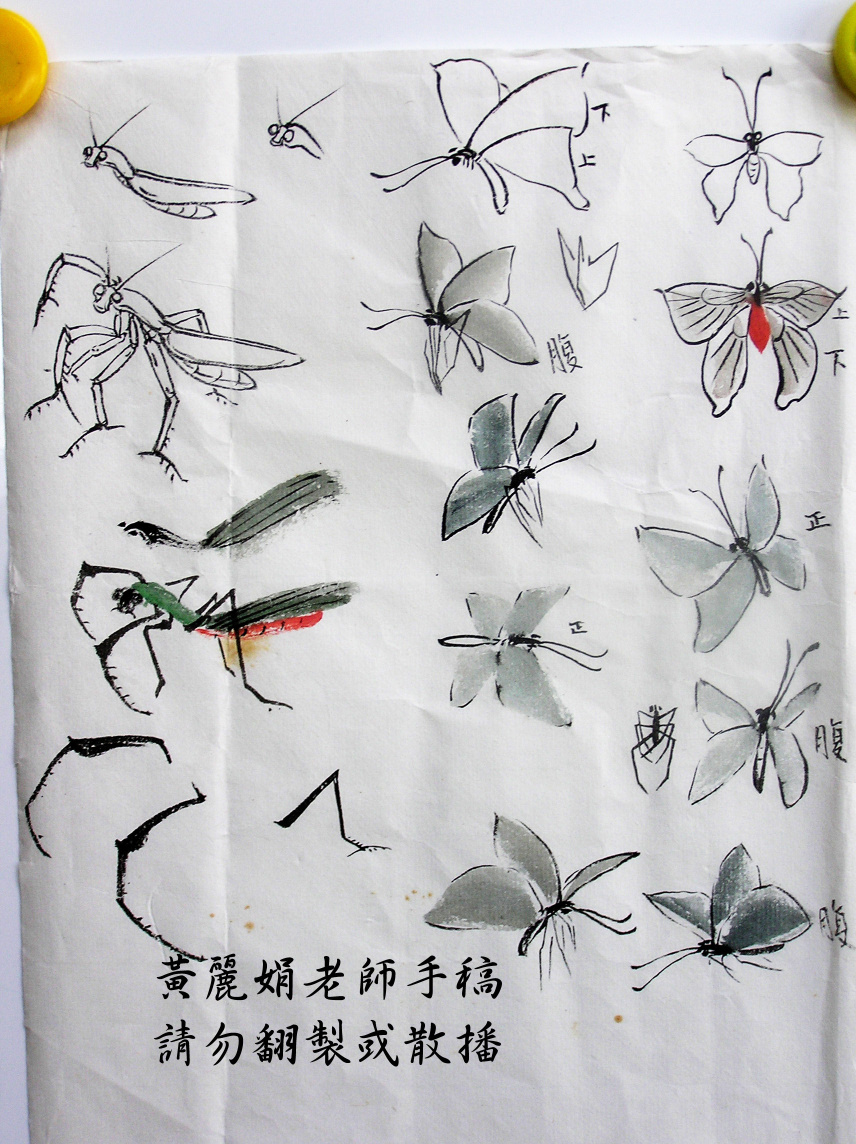 下
上
腹
上
下
正
正
腹
腹
黃麗娟老師手稿
請勿翻製或散播